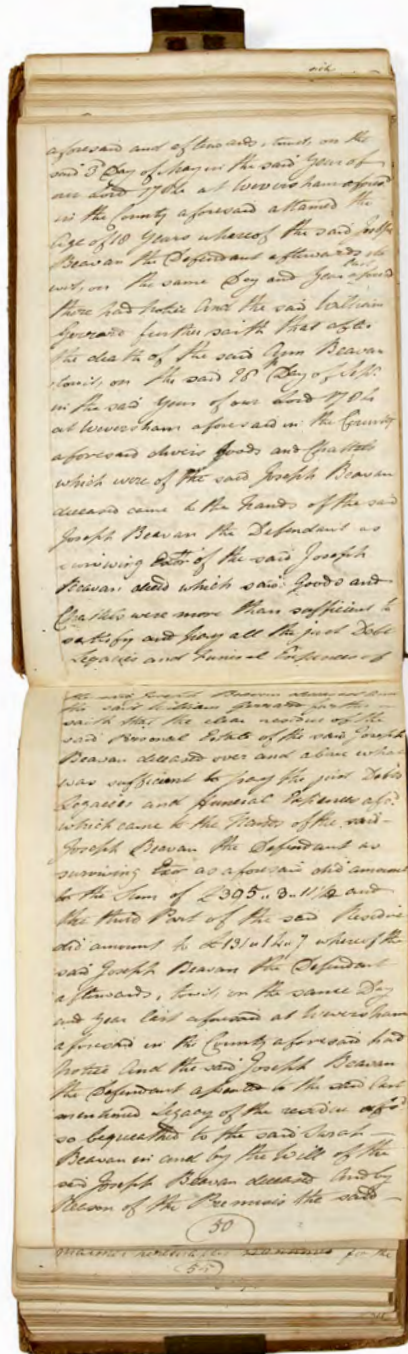 aforesaid and afterwards towit on the
said 3d Day of May in the said Year of
our Lord at Weversham aforesd
in the County aforesaid attained the
Age of 18 Years whereof the said Joseph
Beavan the Defendant afterwards to
wit, on the same Day and Year aforesd
there had notice And the said William
Gerrard further saith that after
the death of the said Ann Beavan
towit, on the said 28th Day of
in the said Year of our Lord
at Weversham aforesaid in the County
aforesaid divers Goods and Chattels
which were of the said Joseph Beavan
deceased came to the Hands of the said
Joseph Beavan the Defendant as
surviving Exor of the said Joseph
Beavan deced which said Goods and
Chattels were more than sufficient to
satisfy and pay all the just Debts
Legacies and Funeral Expences of
the said Joseph Beavan deceased And
the said William Gerrard further
saith that the clear residue of the
said Personal Estate of the said Joseph
Beavan deceased over and above what
was sufficient to pay the just Debts
Legacies and Funeral Expences afsd
which came to the Hands of the said
Joseph Beavan the Defendant as
surviving Exor as aforesaid did amount
to the Sum of £395 " 3 " 11 1/2 and
the third Part of the said Residue
did amount to £131 " 14 " 7 whereof the
said Joseph Beavan the Defendant
afterwards, towit, on the same Day
and Year last aforesd at Weversham
aforesaid in the County aforesaid had
notice And the said Joseph Beavan
the Defendant assented to the said last
mentioned Legacy of the residue afsd
so bequeathed to the said Sarah
Beavan in and by the Will of the
said Joseph Beavan deceased And by
Reason of the Premises the said
50
for the
55